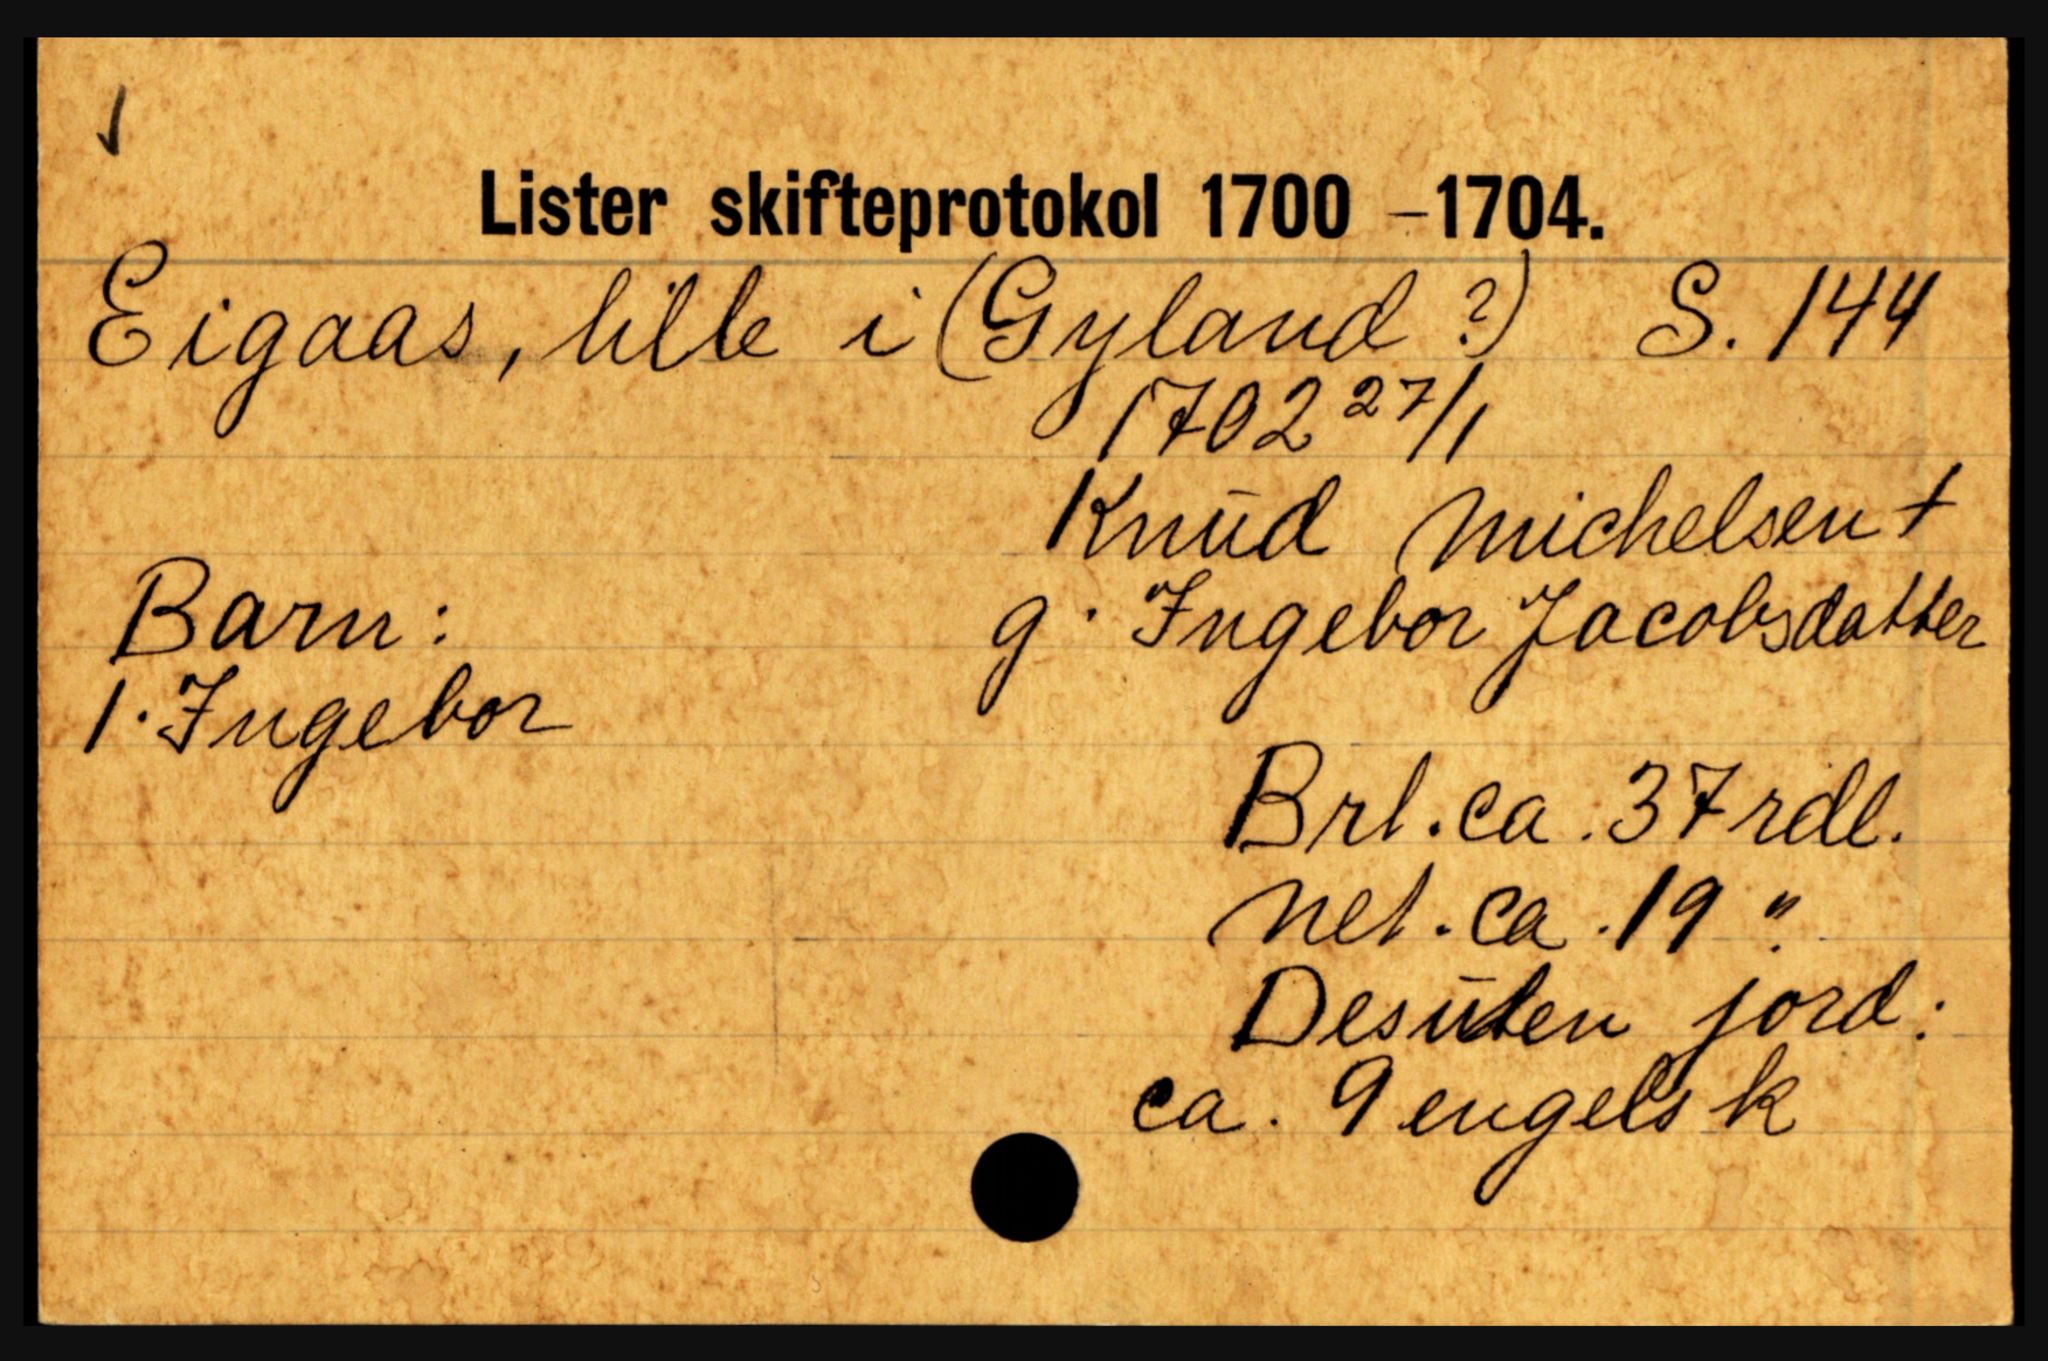 Lister skifteprotokol 1700 – 1704.
Eigaas, lille i (Gyland ?) S. 144
1702 27/1
Knud Michelsen +
g. Ingebor Jacobsdatter
Barn:
1. Ingebor
Brt. ca. 37 rdl.
Net. ca. 19 "
Desuten jord:
ca. 9 engelsk